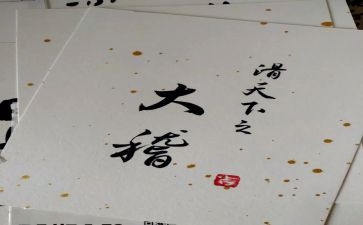 滑天下之
大稽